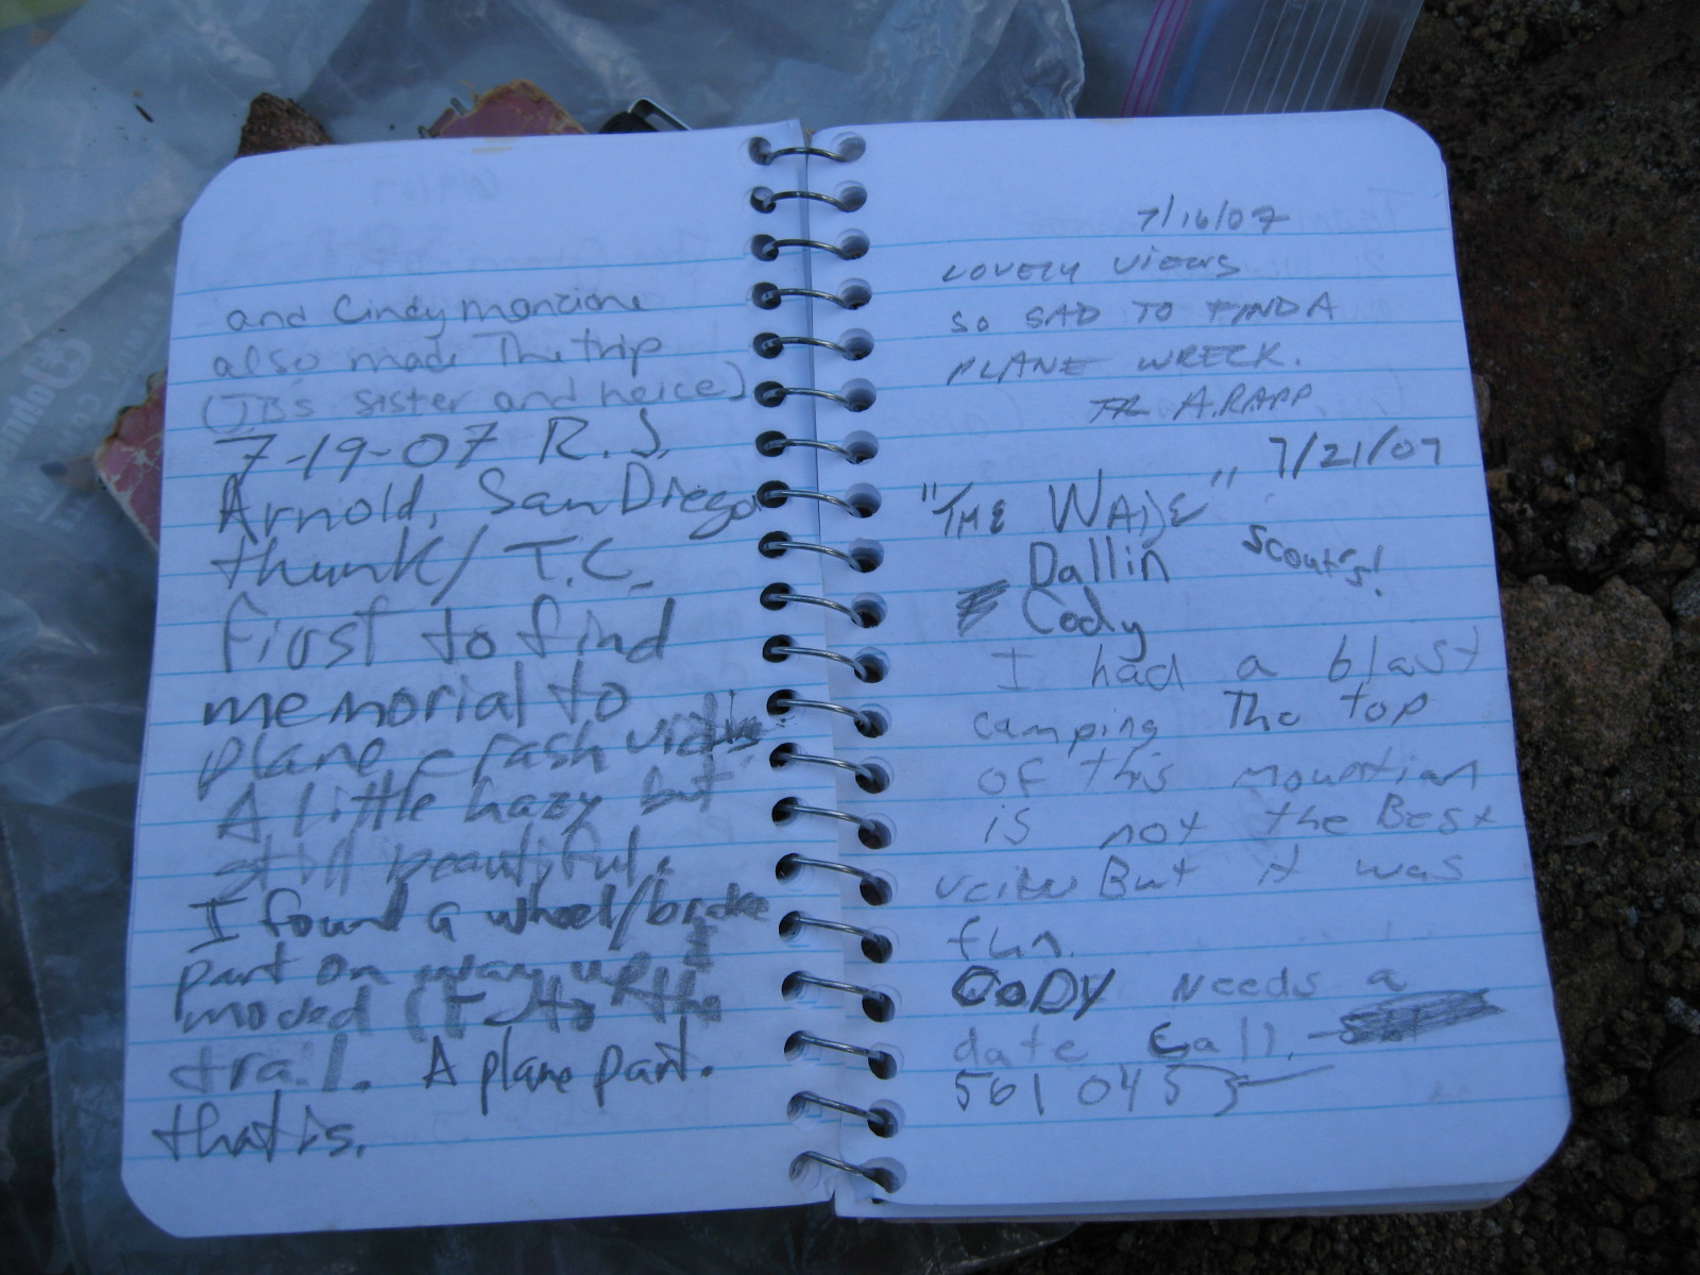 and Cindy mancione
also made The trip
(JB's sister and neice)
7-19-07 R.S.
Arnold, San Diego
thunk/ T.C.
first to find
memorial to
plane crash
A little hazy but
still beautiful.
I found a wheel/brake
part on way up I
moved it to the
trail. A plane part.
that is.
7/16/07
LOVELY VIEWS
SO SAD TO FIND A
PLANE WRECK.
A. RAPP
7/21/07
"THE WADE"
Dallin Scouts!
Cody
I had a blast
camping The top
of this mountian
is not the Best
But it was
fun.
CODY Needs a
date Call.
561 0453